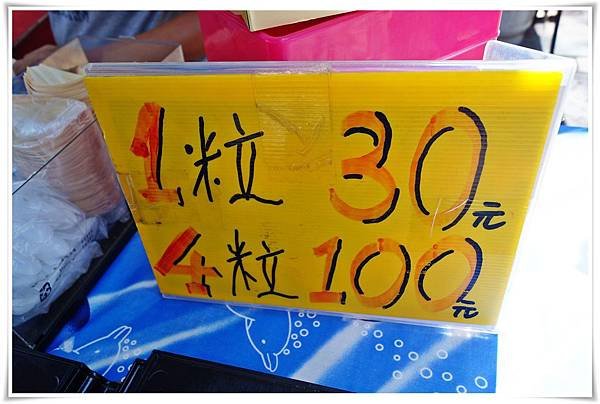 1粒 30元
4粒 100元